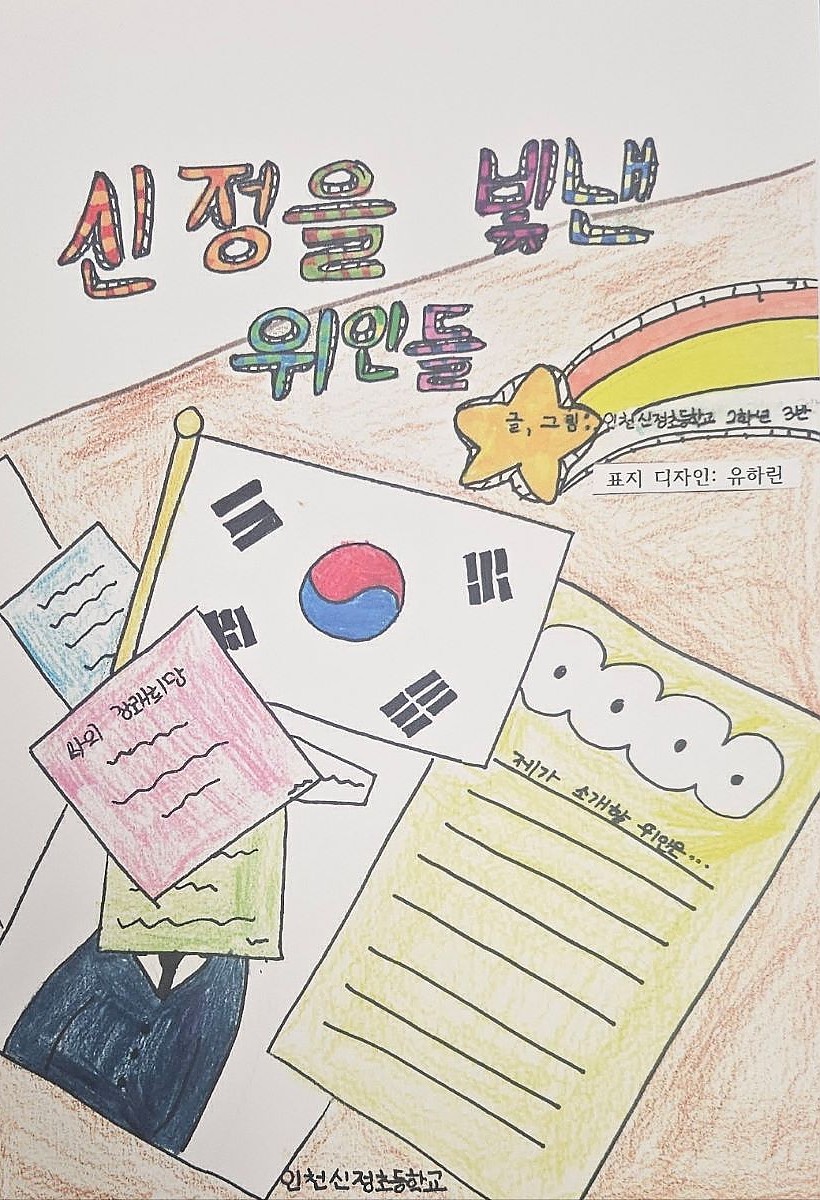 신정을 빛낸
위인들
글, 그림: 인천신정초등학교 2학년 3반
표지 디자인: 유하린
나의 장래희망
제가 소개할 위인은...
인천신정초등학교